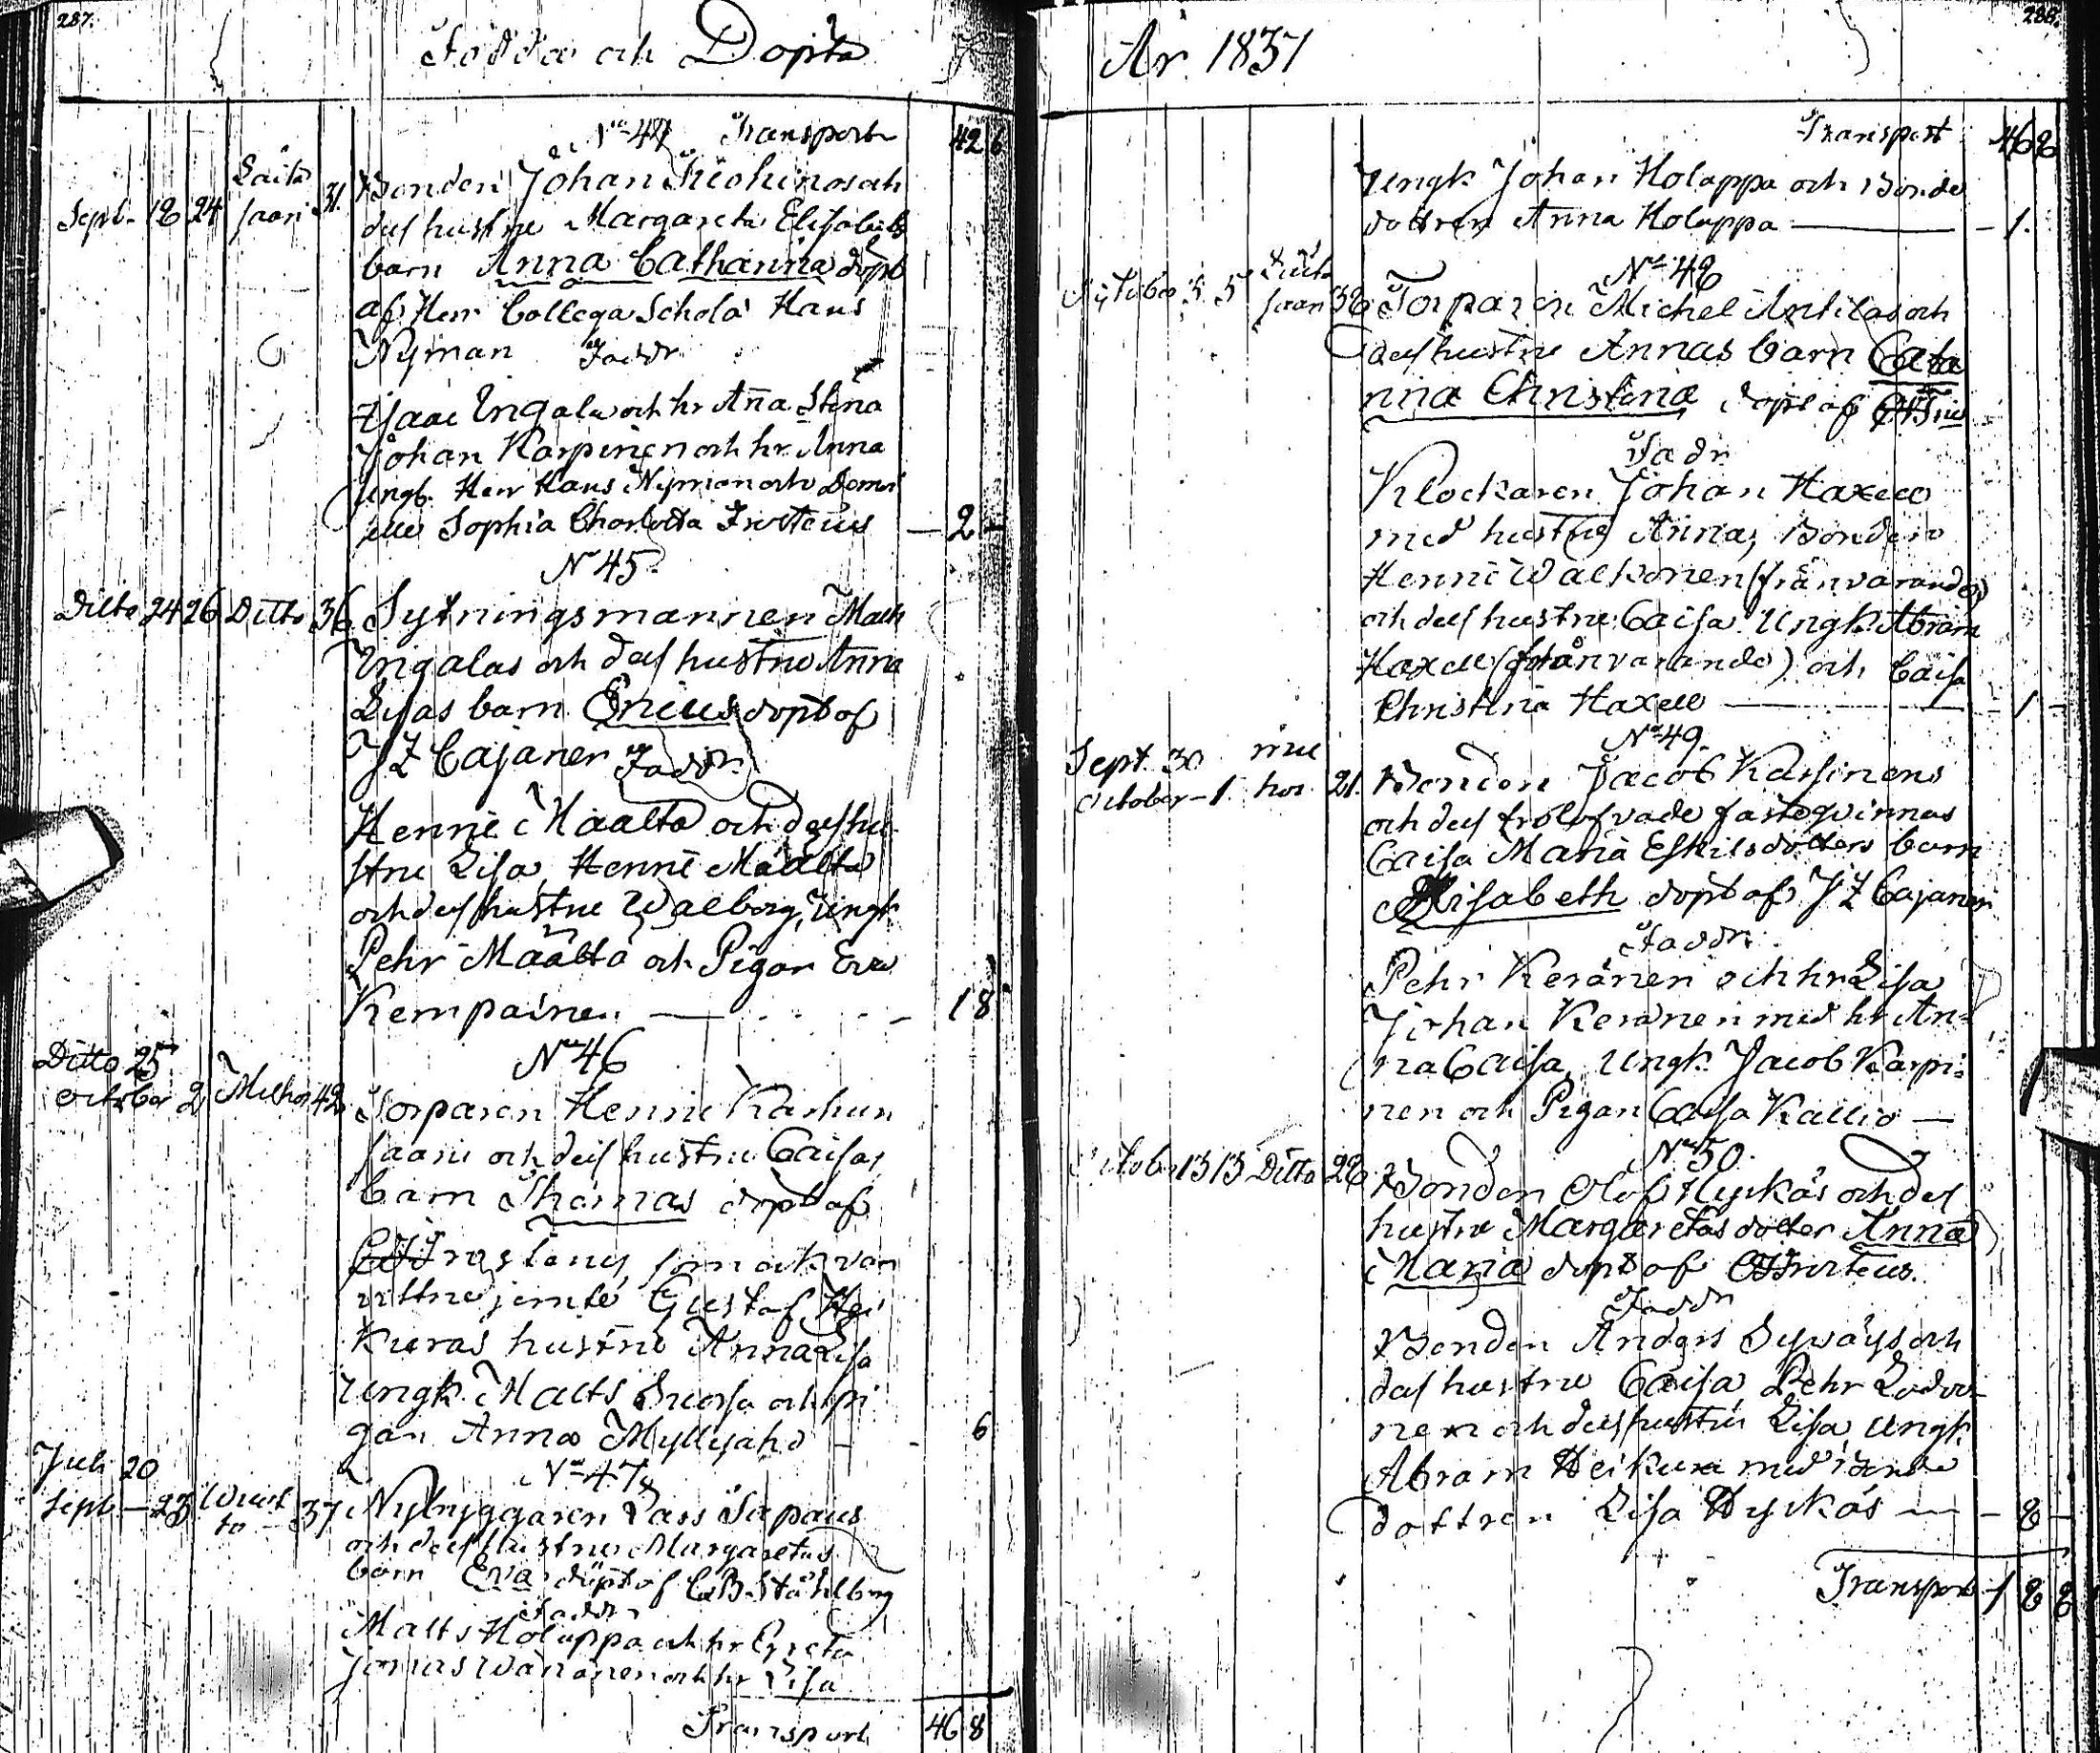 287.
Födde och Döpte
No 44 Transport 42 6
Sept. 18 24 Säitä
saari 31. Bonden Johan och
dess hustru Margareta Elisabets
barn Anna Catharina döpt
af Herr Collega Schola Hans
Nyman Faddr
Isaac Ingala och hr Aña Stina
Johan Karpinen och hr Anna
Ungk. Herr Hans Nyman och Domi
selle Sophia Charlotta Frosteus — 2 —
No 45.
Ditto 24 26 Ditto 36 Sytningsmannen Matts
Ingalas och dess hustru Anna
Lisas barn Ericus döpt af
J Z Cajaner Faddr.
Henric Määttä och dess hu-
stru Lisa, Henric Määttä
och dess hustru Walborg, Ungk.
Pehr Määttä och Pigan Eva
Kempainen — 1 8
No 46
Ditto 25
October 2 Mieho 42 Torparen Henric Karhun
saari och dess hustru Caisas
barn Thomas döpt af
C J Frosteus, som ock var
vittne jemte Gustaf Hei
kuras hustru Anna Lisa
Ungk. Matts Suorsa och pi
gan Anna Myllyaho — 6
No 47
Juli 20
Sept — 23 Wuot
to 37 Nybyggaren Lars Sapaus
och dess Hustrus Margaretas
barn Eva döpt af C B Ståhlberg
Faddr
Matts Holappa och hr Greta
Jonas Wänänen och hr Lisa
Transport 46 8
År 1837
288.
Transport 46 8
Ungk Johan Holappa och Bonde
dottren Anna Holappa — 1.
No 48
October 5 5 Säitä
saari 38 Torparen Michel Anttilas och
dess hustru Annas barn Cata
rina Christina döpt af
Fadr
Klockaren Johan Haxell
med hustru Anna, Bonden
Henric Walkonen (frånvarande)
och dess hustru Caisa Ungk. Abram
Haxell (frånvarande) och Caisa
Christina Haxell — 1 —
No 49.
Sept. 30 mie
October — 1. hoi 21. Bonden Jacob Karpinens
och dess trolofvade fästeqvinnas
Caisa Maria Eskilsdotters barn
Elisabeth döpt af J Z Cajaner
Faddr.
Pehr Keränen och hr Lisa
Johan Keränen med hr An-
na Caisa, Ungk. Jacob Karpi-
nen och Pigan Caisa Kallio —
No 50.
October 13 13 Ditto 28 Bonden Olof Hyrkäs och dess
hustru Margaretas dotter Anna
Maria döpt af C J Frosteus.
Faddr
Bonden Anders Sywäys och
dess hustru Caisa Pehr
nen och dess hustru Lisa, Ungk.
Abram Heikura med Bonde
dottren Lisa Hyrkäs — 8 —
Transport 1 8 8